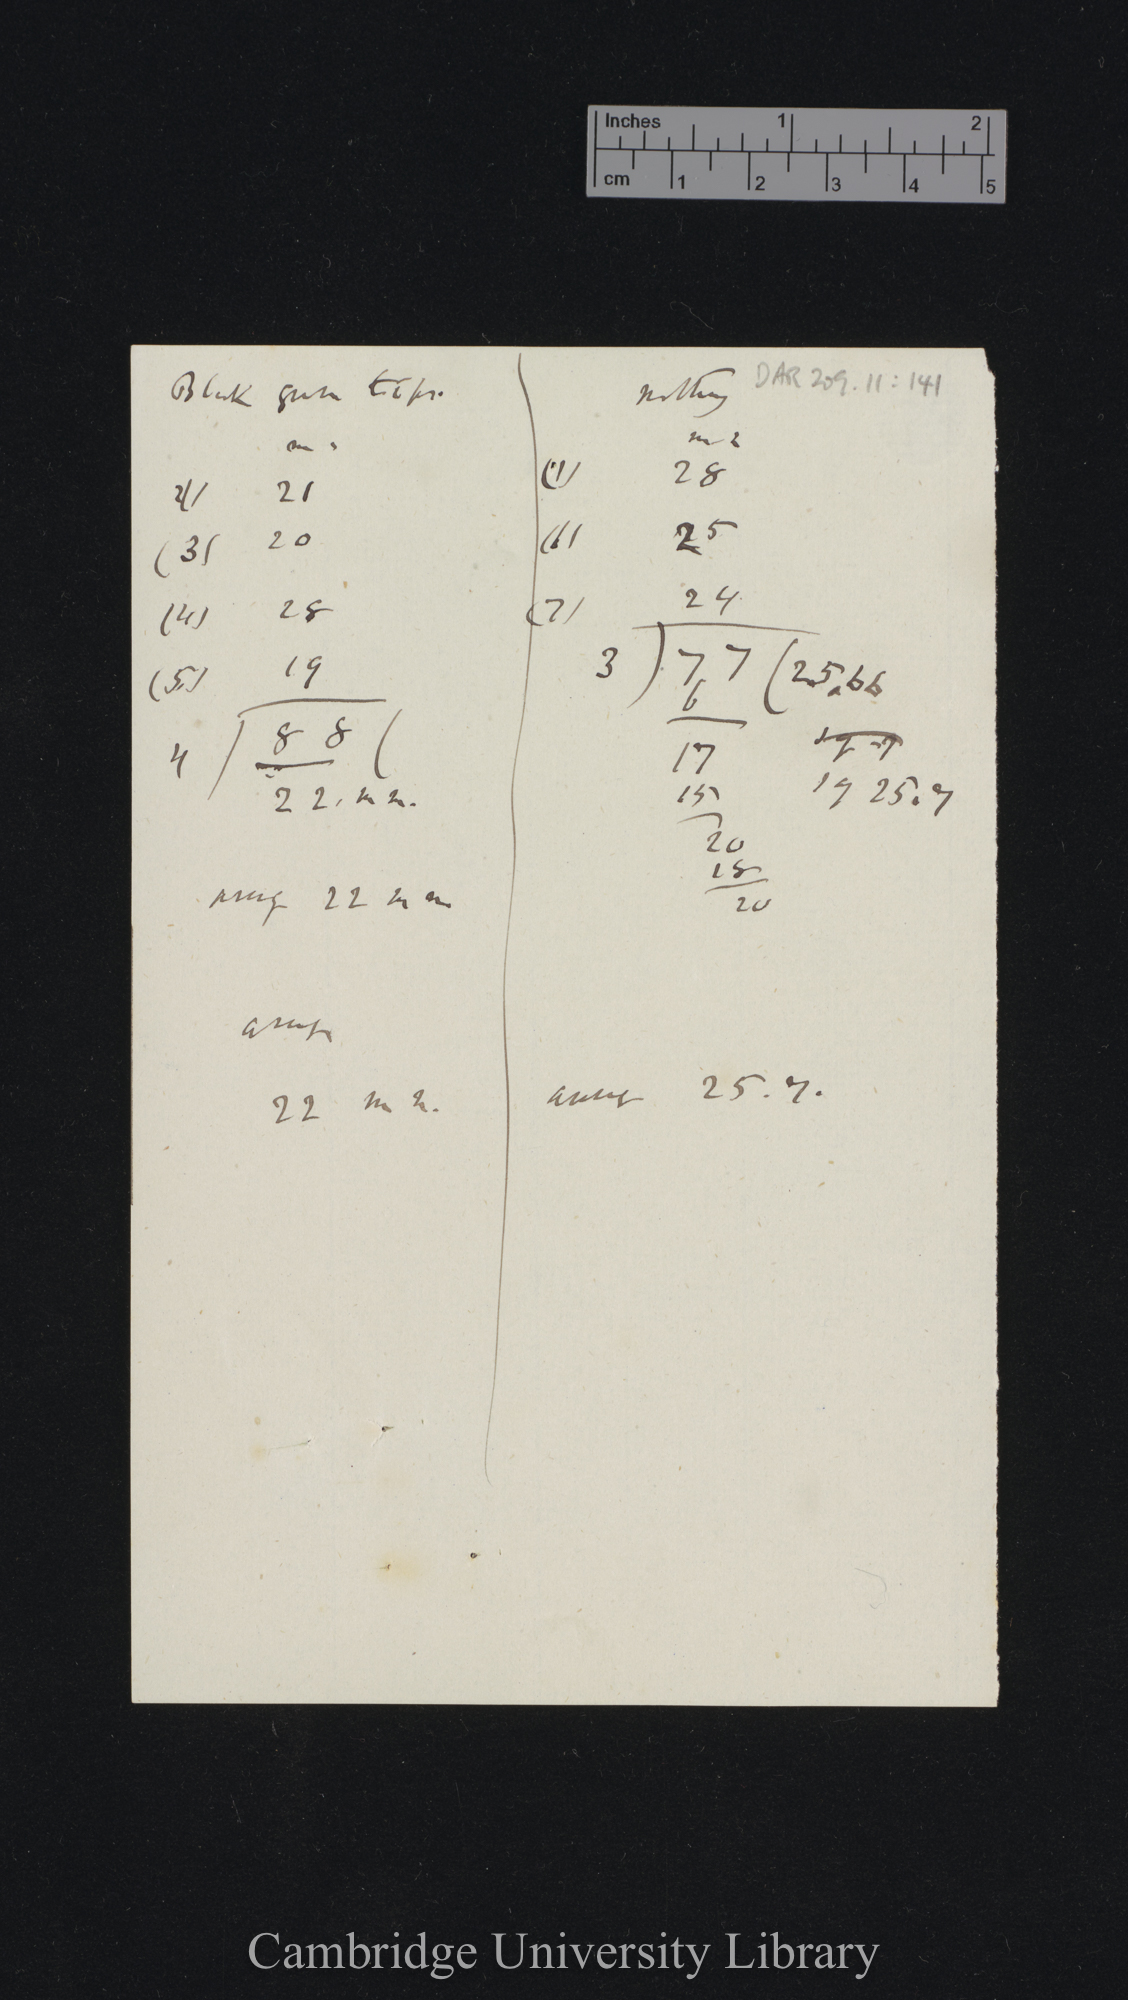 Inches 1 2
cm 1 2 3 4 5
DAR 209.11:141
Black gum tips.
m.
2) 21
(3) 20
(4) 28
(5) 19
4 ) 88 (
22. mm.
22 mm
22 mm.
nothing
mm
(1) 28
(6) 25
(7) 24
3 ) 77 ( 25.66
6
17
15
20
18
20
25.7
25.7.
Cambridge University Library